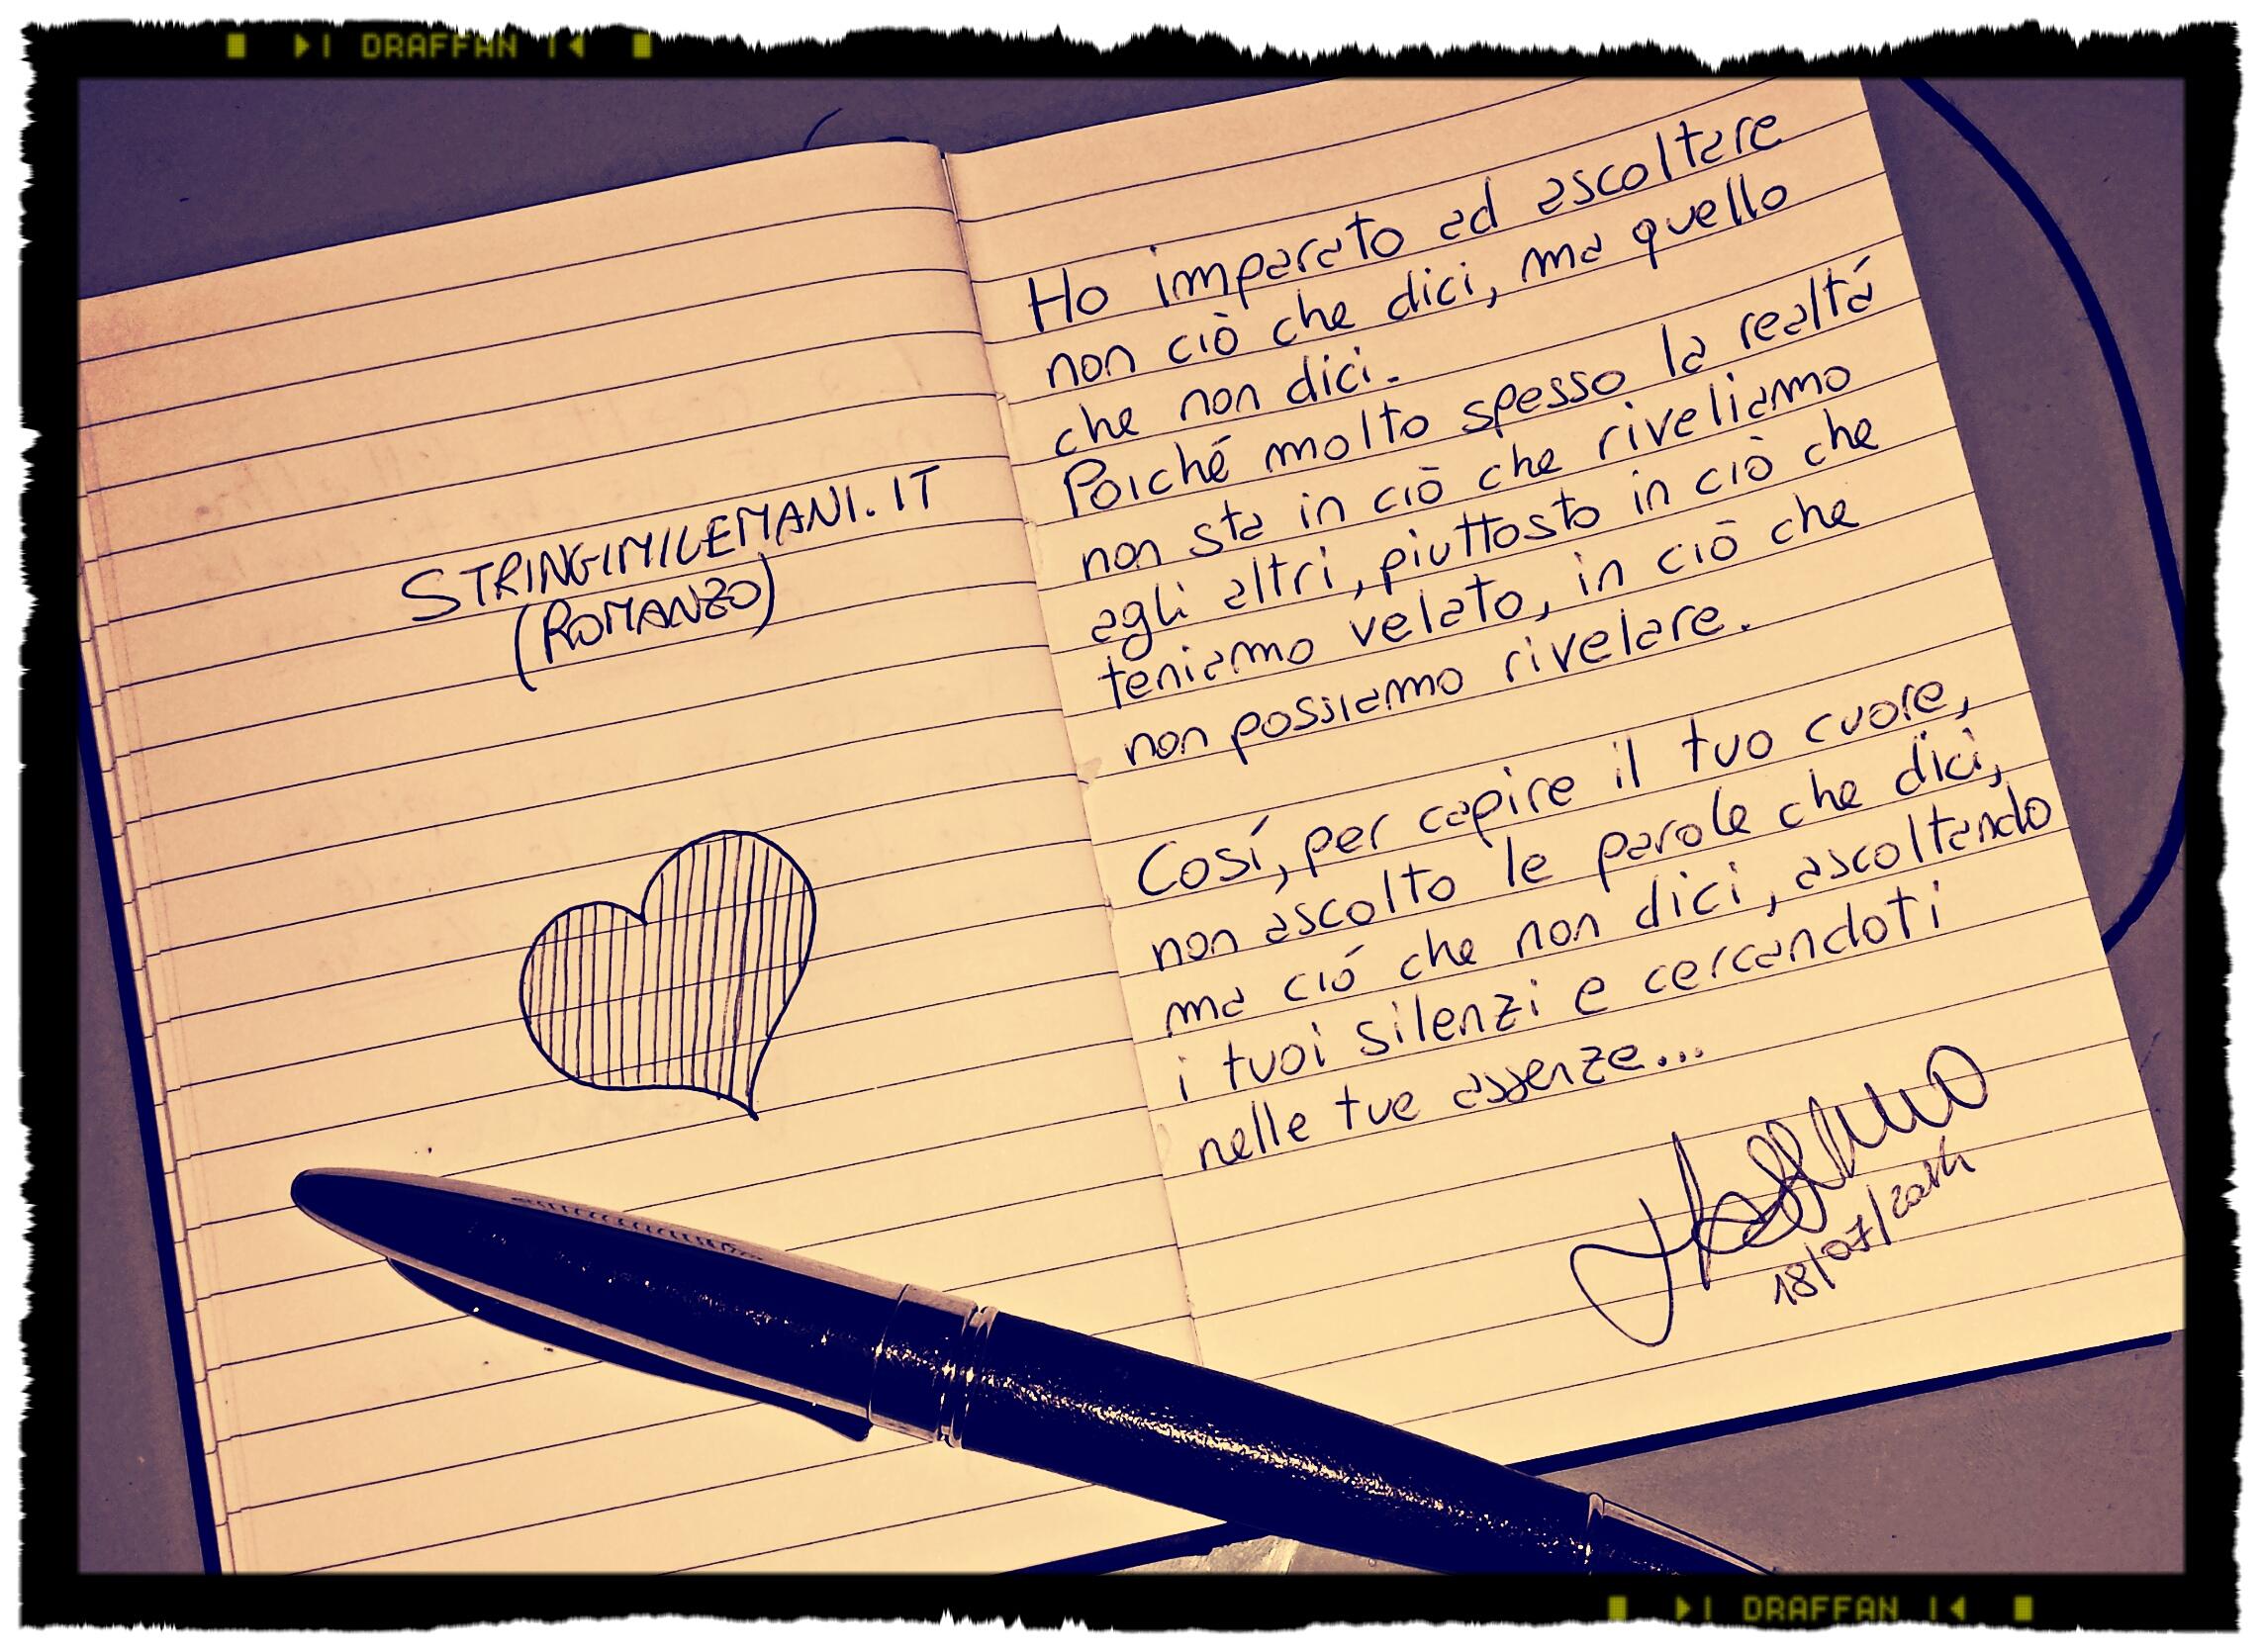 DRAFFAN
STRINGIMILEMANI.IT
(ROMANZO)
Ho imparato ad ascoltare
non ciò che dici, ma quello
che non dici.
Poiché molto spesso la realtá
non sta in ciò che riveliamo
agli altri, piuttosto in ciò che
teniamo velato, in ciò che
non possiamo rivelare.
Cosí, per capire il tuo cuore,
non ascolto le parole che dici,
ma ció che non dici, ascoltando
i tuoi silenzi e cercandoti
nelle tue assenze...
18/07/2014
DRAFFAN